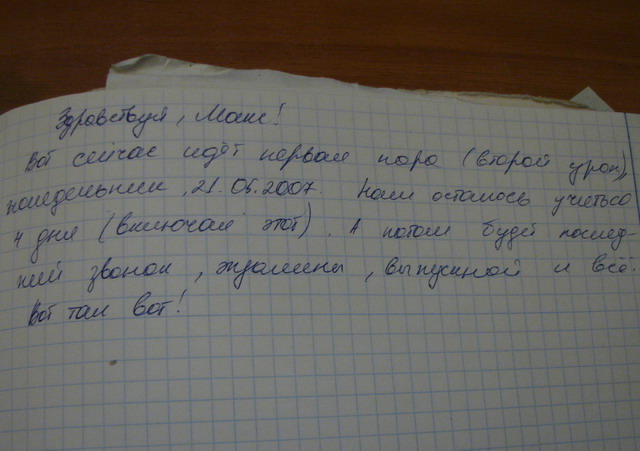 Здравствуй, Макс!
Вот сейчас идёт первая пара (второй урок),
понедельник, 21.05.2007. Нам осталось учиться
4 дня (включая этот). А потом будет послед-
ний звонок, экзамены, выпускной и всё.
Вот так вот!